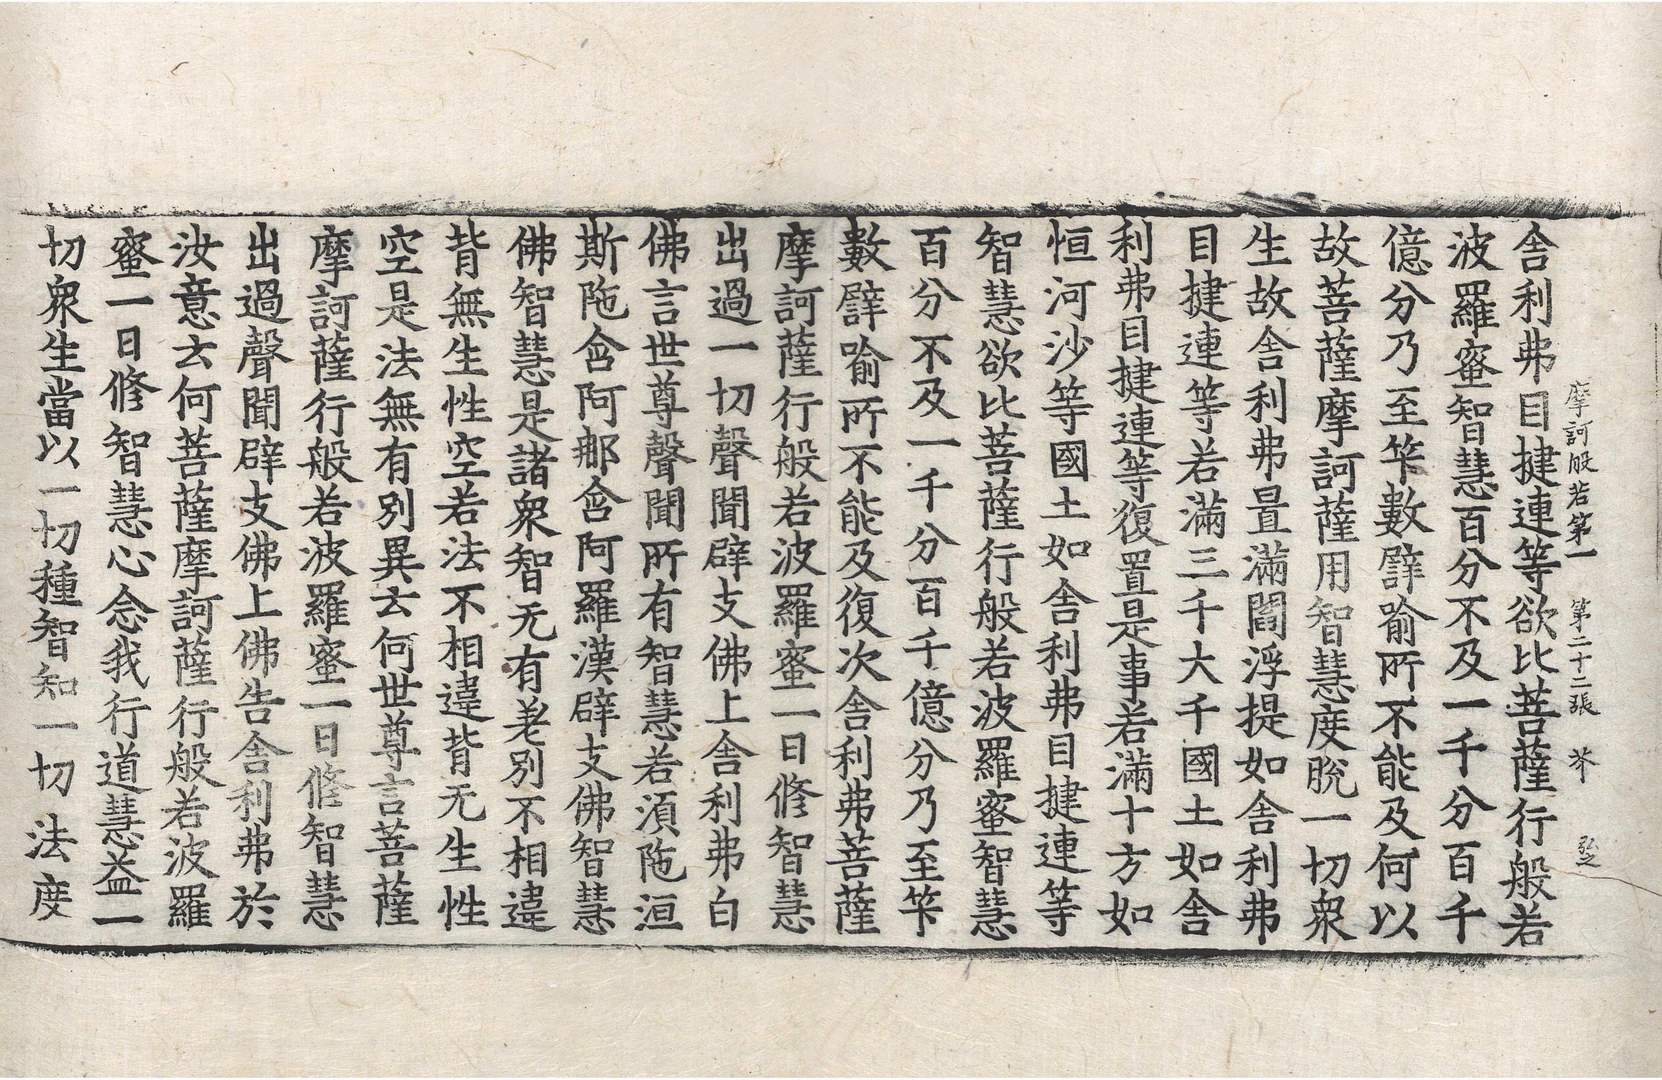 摩訶般若第一　第二十二張　芥　弘之
舍利弗目揵連等欲比菩薩行般若
波羅蜜智慧百分不及一千分百千
億分乃至筭數譬喻所不能及何以
故菩薩摩訶薩用智慧度脫一切衆
生故舍利弗置滿閻浮提如舍利弗
目揵連等若滿三千大千國土如舍
利弗目揵連等復置是事若滿十方如
恒河沙等國土如舍利弗目揵連等
智慧欲比菩薩行般若波羅蜜智慧
百分不及一千分百千億分乃至筭
數譬喻所不能及復次舍利弗菩薩
摩訶薩行般若波羅蜜一日修智慧
出過一切聲聞辟支佛上舍利弗白
佛言世尊聲聞所有智慧若須陁洹
斯陁含阿那含阿羅漢辟支佛智慧
佛智慧是諸衆智无有差別不相違
背無生性空若法不相違背无生性
空是法無有別異云何世尊言菩薩
摩訶薩行般若波羅蜜一日修智慧
出過聲聞辟支佛上佛告舍利弗於
汝意云何菩薩摩訶薩行般若波羅
蜜一日修智慧心念我行道慧益一
切衆生當以一切種智知一切法度